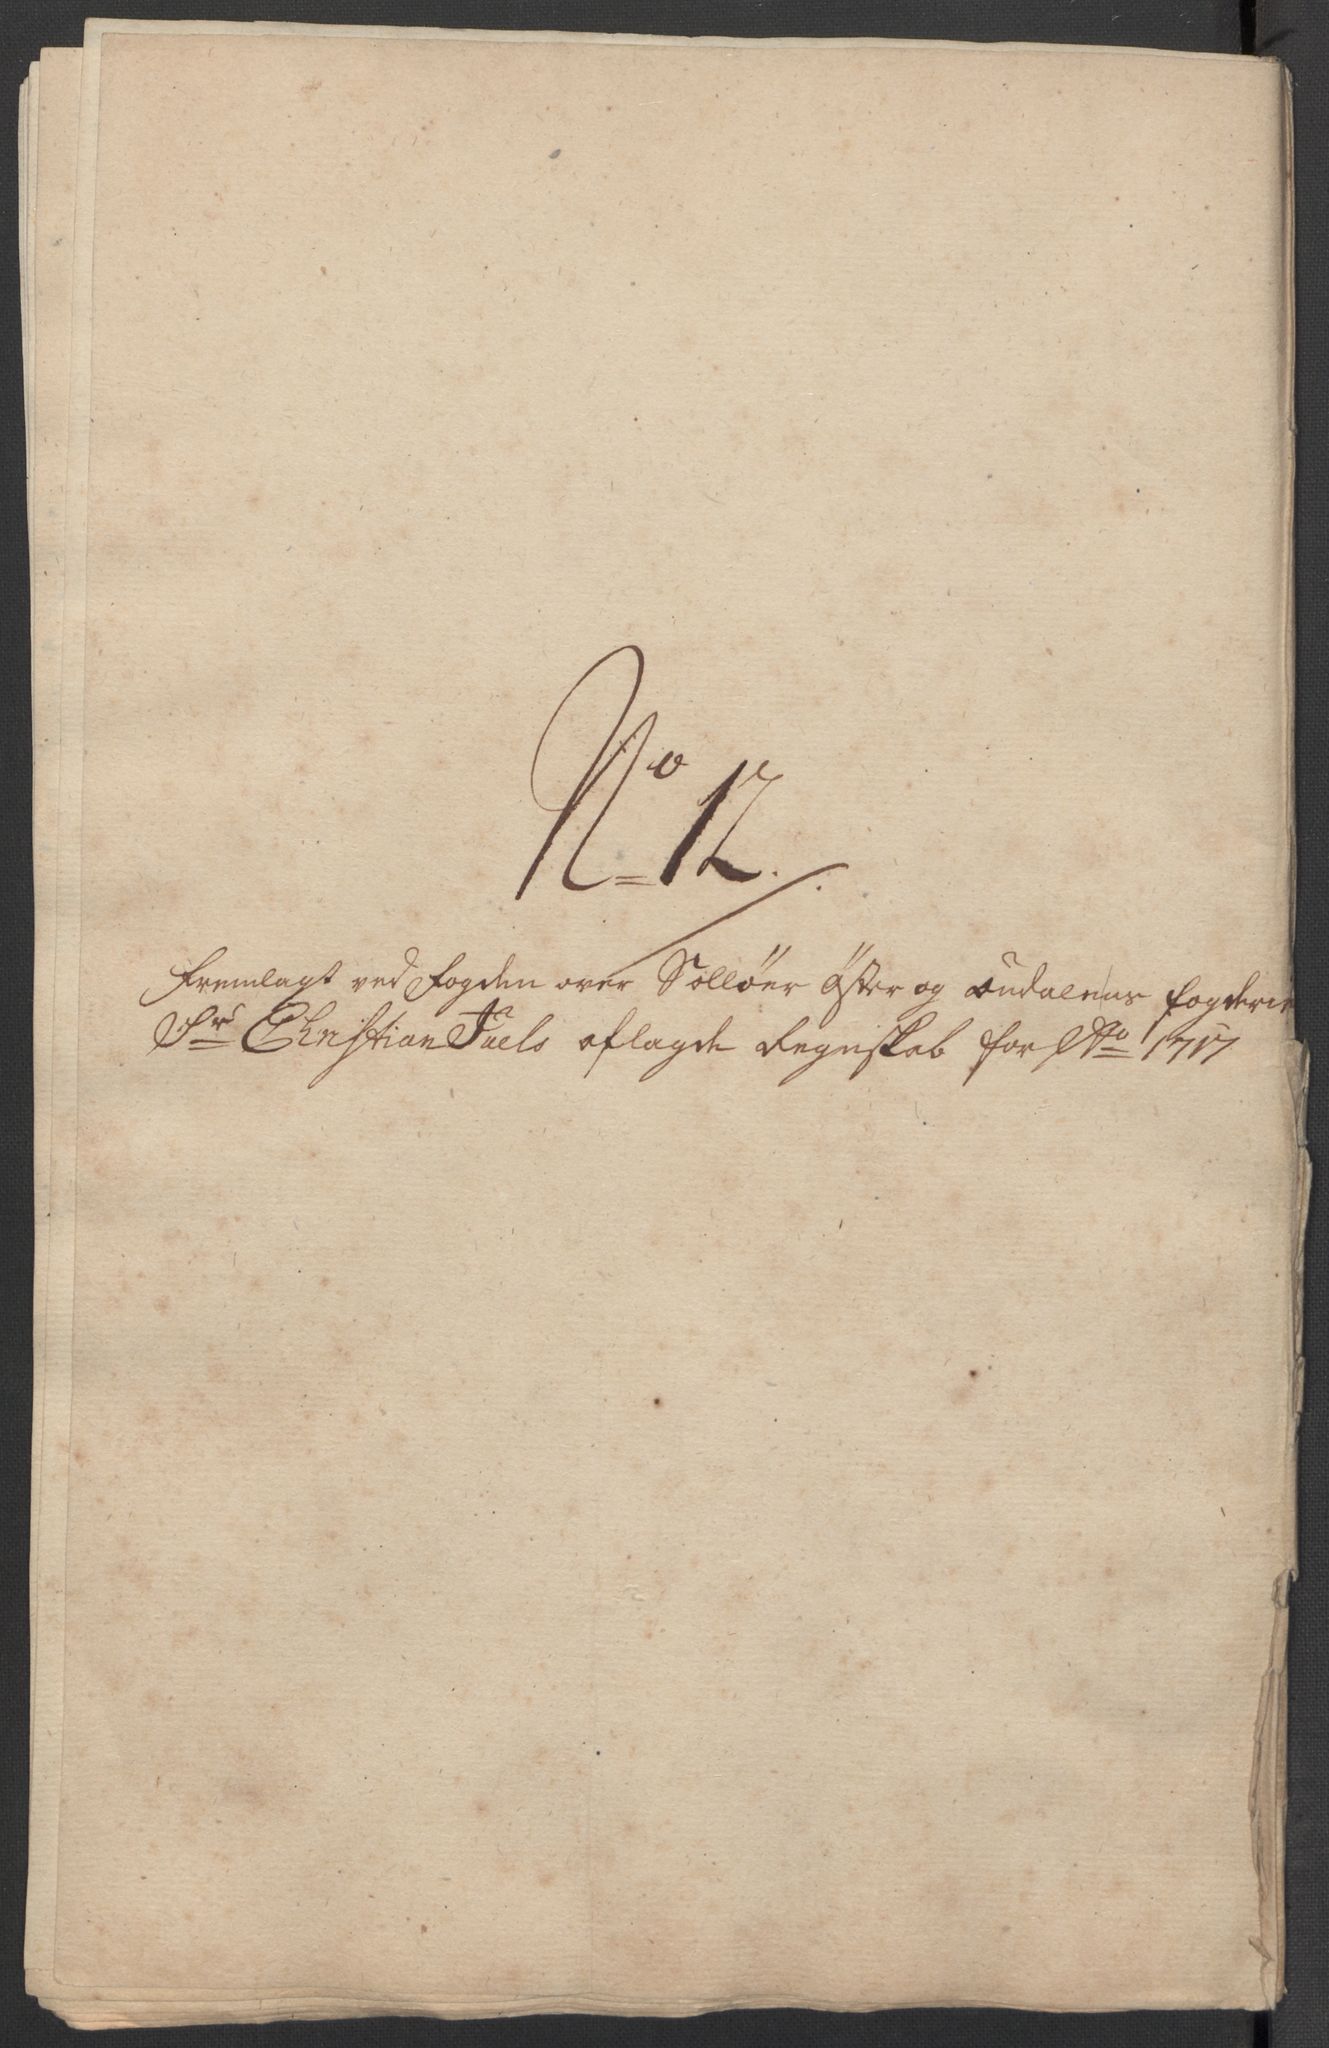 No 12.
Fremlagt ved Fogden over Solløer Øster og Oudalens fogderie
Sr Christian Juels aflagde Regnskab for Ao 1717